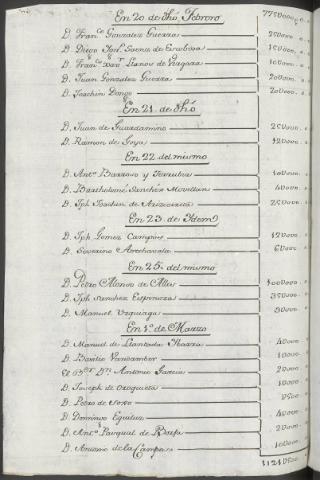 En 20 de dhó Febrero 7750000..
D. Franco Gonzalez Guerra 250000..
D. Diego Josf Saenz de Escobosa 150000..
D. Franco Xavr Llanos de Vergara 100000..
D. Juan Gonzalez Guerra 200000..
D. Joachin Dongo 200000..
En 21. de dhó
D. Juan de Guardamino 250000..
D. Ramon de Goya 120000..
En 22 del mismo
D. Anto Barroso y Torrubia 100000..
D. Bartholomé Sanchez 40000..
D. Jph Joachin de Ariscorreta 250000..
En 23. de Idem
D. Jph Gomez Campos 120000..
D. Severino Arechavala 60000..
En 25. del mismo
D. Pedro Alonso de Alles 1000000..
D. Jph Sanchez Espinoza 350000..
D. Manuel Urquiaga 30000..
En 1.º de Marzo
D. Manuel de Llantada Ybarra 40000..
D. Basilio 10000..
El Br Dn Antonio Garcia 20000..
D. Joseph de Oroqueta 10000..
D. Pedro de
D. Domingo Eguiluz
D. Anto Pasqual de
D. Antonio de la Campa 10000..